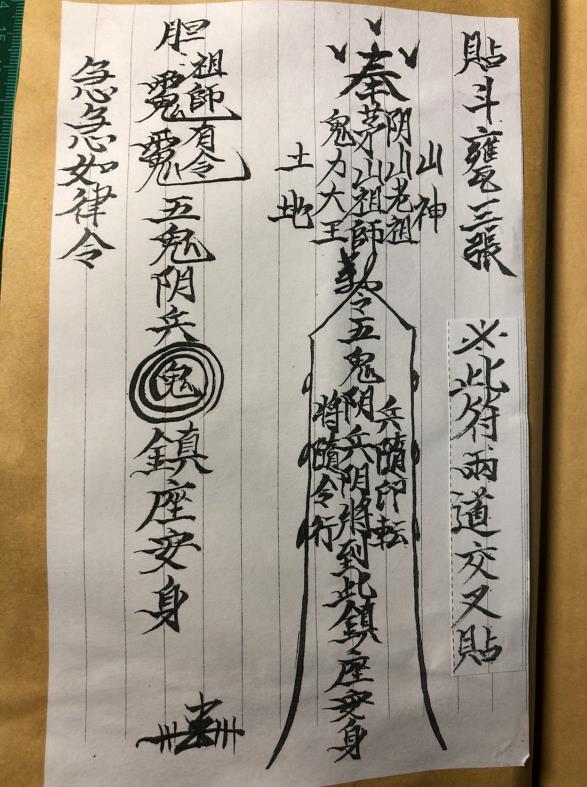 貼斗甕三張
※此符兩道交叉貼
奉
山神
阴山老祖
茅山祖師
鬼力大王
土地
勅令五鬼阴兵阴将到此鎮座安身
兵隨印転
将隨令行
胆
祖師有令
五鬼阴兵鬼鎮座安身
急急如律令